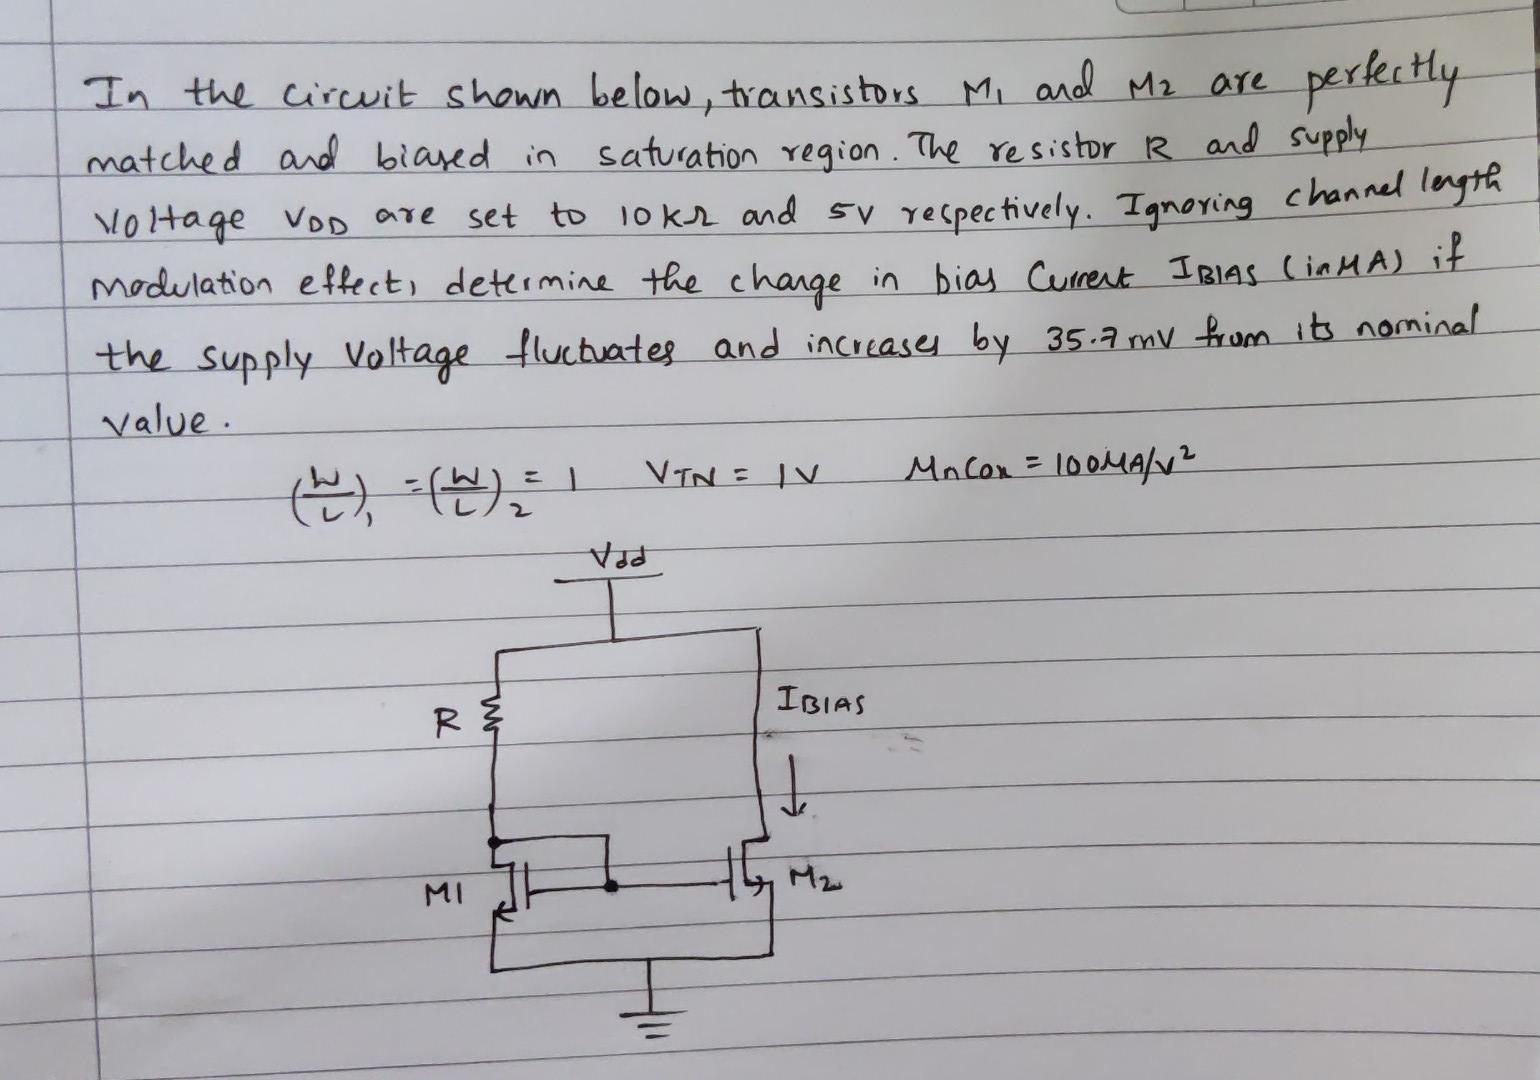 In the circuit shown below, transistors M1 and M2 are perfectly
matched and biased in saturation region. The resistor R and supply
voltage VDD are set to 10kΩ and 5V respectively. Ignoring channel length
modulation effect, determine the change in bias Current IBIAS (in μA) if
the supply voltage fluctuates and increases by 35.7 mV from its nominal
value.
(W/L)1 = (W/L)2 = 1 VTN = 1V μnCox = 100μA/V²
Vdd
R
IBIAS
M1
M2